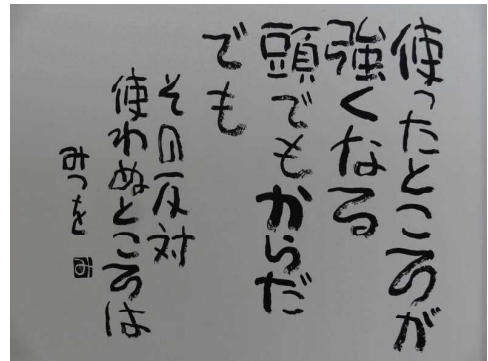 使ったところが
強くなる
頭でもからだ
でも
その反対
使わぬところは
みつを